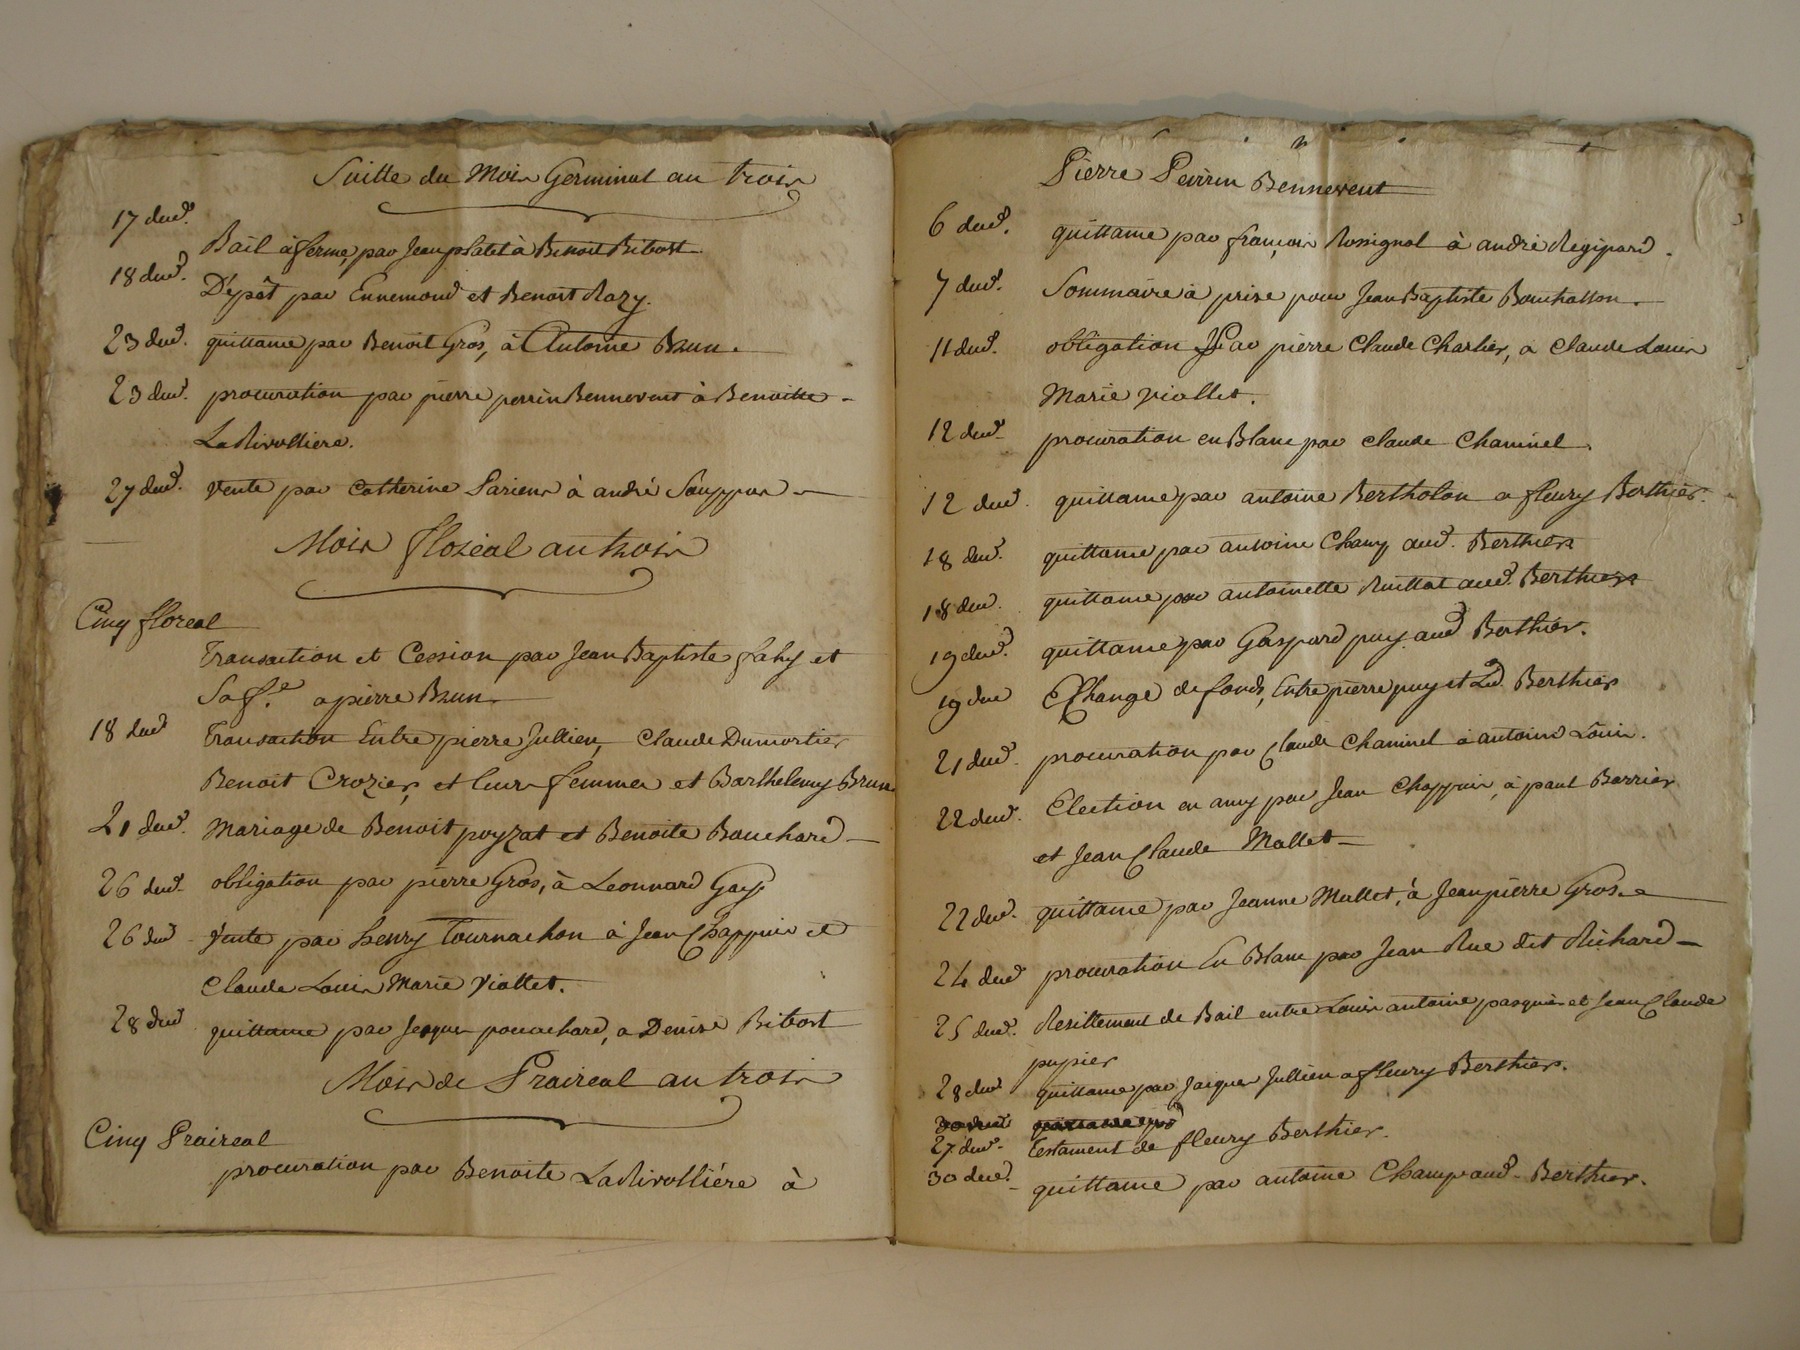 Suitte du Mois Germinal an trois
17 dud.
Bail à ferme, par Jean platet à Benoit Ribost
18 dud.
Dépôt par Ennemond et Benoit Razy.
23 dud. quittance par Benoit Gros, à Antoine Brun.
23 dud. procuration par pierre perrin Bennevent à Benoitte
La Rivolliere.
27 dud. Vente par Catherine Pariens à andré
Mois floréal an trois
Cinq floreal
Transaction et Cession par Jean Baptiste fahy et
Sa f.e a pierre Brun.
18 dud Transaction Entre pierre Jullien, Claude Dumortier
Benoit Crozier, et leurs femmes et Barthelemy Brun
21 dud. Mariage de Benoit poyzat et Benoite Bouchard
26 dud. obligation par pierre Gros, à Leonnard Gay
26 dud Vente par henry Tournachon à Jean Chappuis et
Claude Louis Marie Viallet.
28 dud quittance par Jacques pouachard, a Denise Ribost
Mois de Praireal an trois
Cinq Praireal
procuration par Benoite La Rivolliére à
Pierre Perrin Bennevent
6 dud. quittance par françois Rossignol à andré Regipard.
7 dud. Sommaire à prise pour Jean Baptiste Bouchatton.
11 dud. obligation Par pierre Claude Charlier, a Claude Louis
Marie Viallet.
12 dud. procuration en Blanc par Claude Chaminel.
12 dud. quittance par antoine Bertholon a fleury Berthier.
18 dud. quittance par antoine Champ aud. Berthier
18 dud. quittance par antoinette Ruillat aud. Berthier
19 dud. quittance par Gaspard puy aud Berthier.
19 dud Echange de fonds, Entre pierre puy et Led. Berthier
21 dud. procuration par Claude Chaminel à antoine Louis.
22 dud. Election en amy par Jean Chappuis, à paul Barrier
et Jean Claude Mallet
22 dud. quittance par Jeanne Mallet, à Jean pierre Gros.
24 dud procuration En Blanc par Jean Rue dit Richard
25 dud. Resillement de Bail entre Louis antoine pasquier et Jean Claude
pupier
28 dud quittance par Jacques Jullien a fleury Berthier.
27 dud. Testament de fleury Berthier.
30 dud. quittance par antoine Champ aud. Berthier.